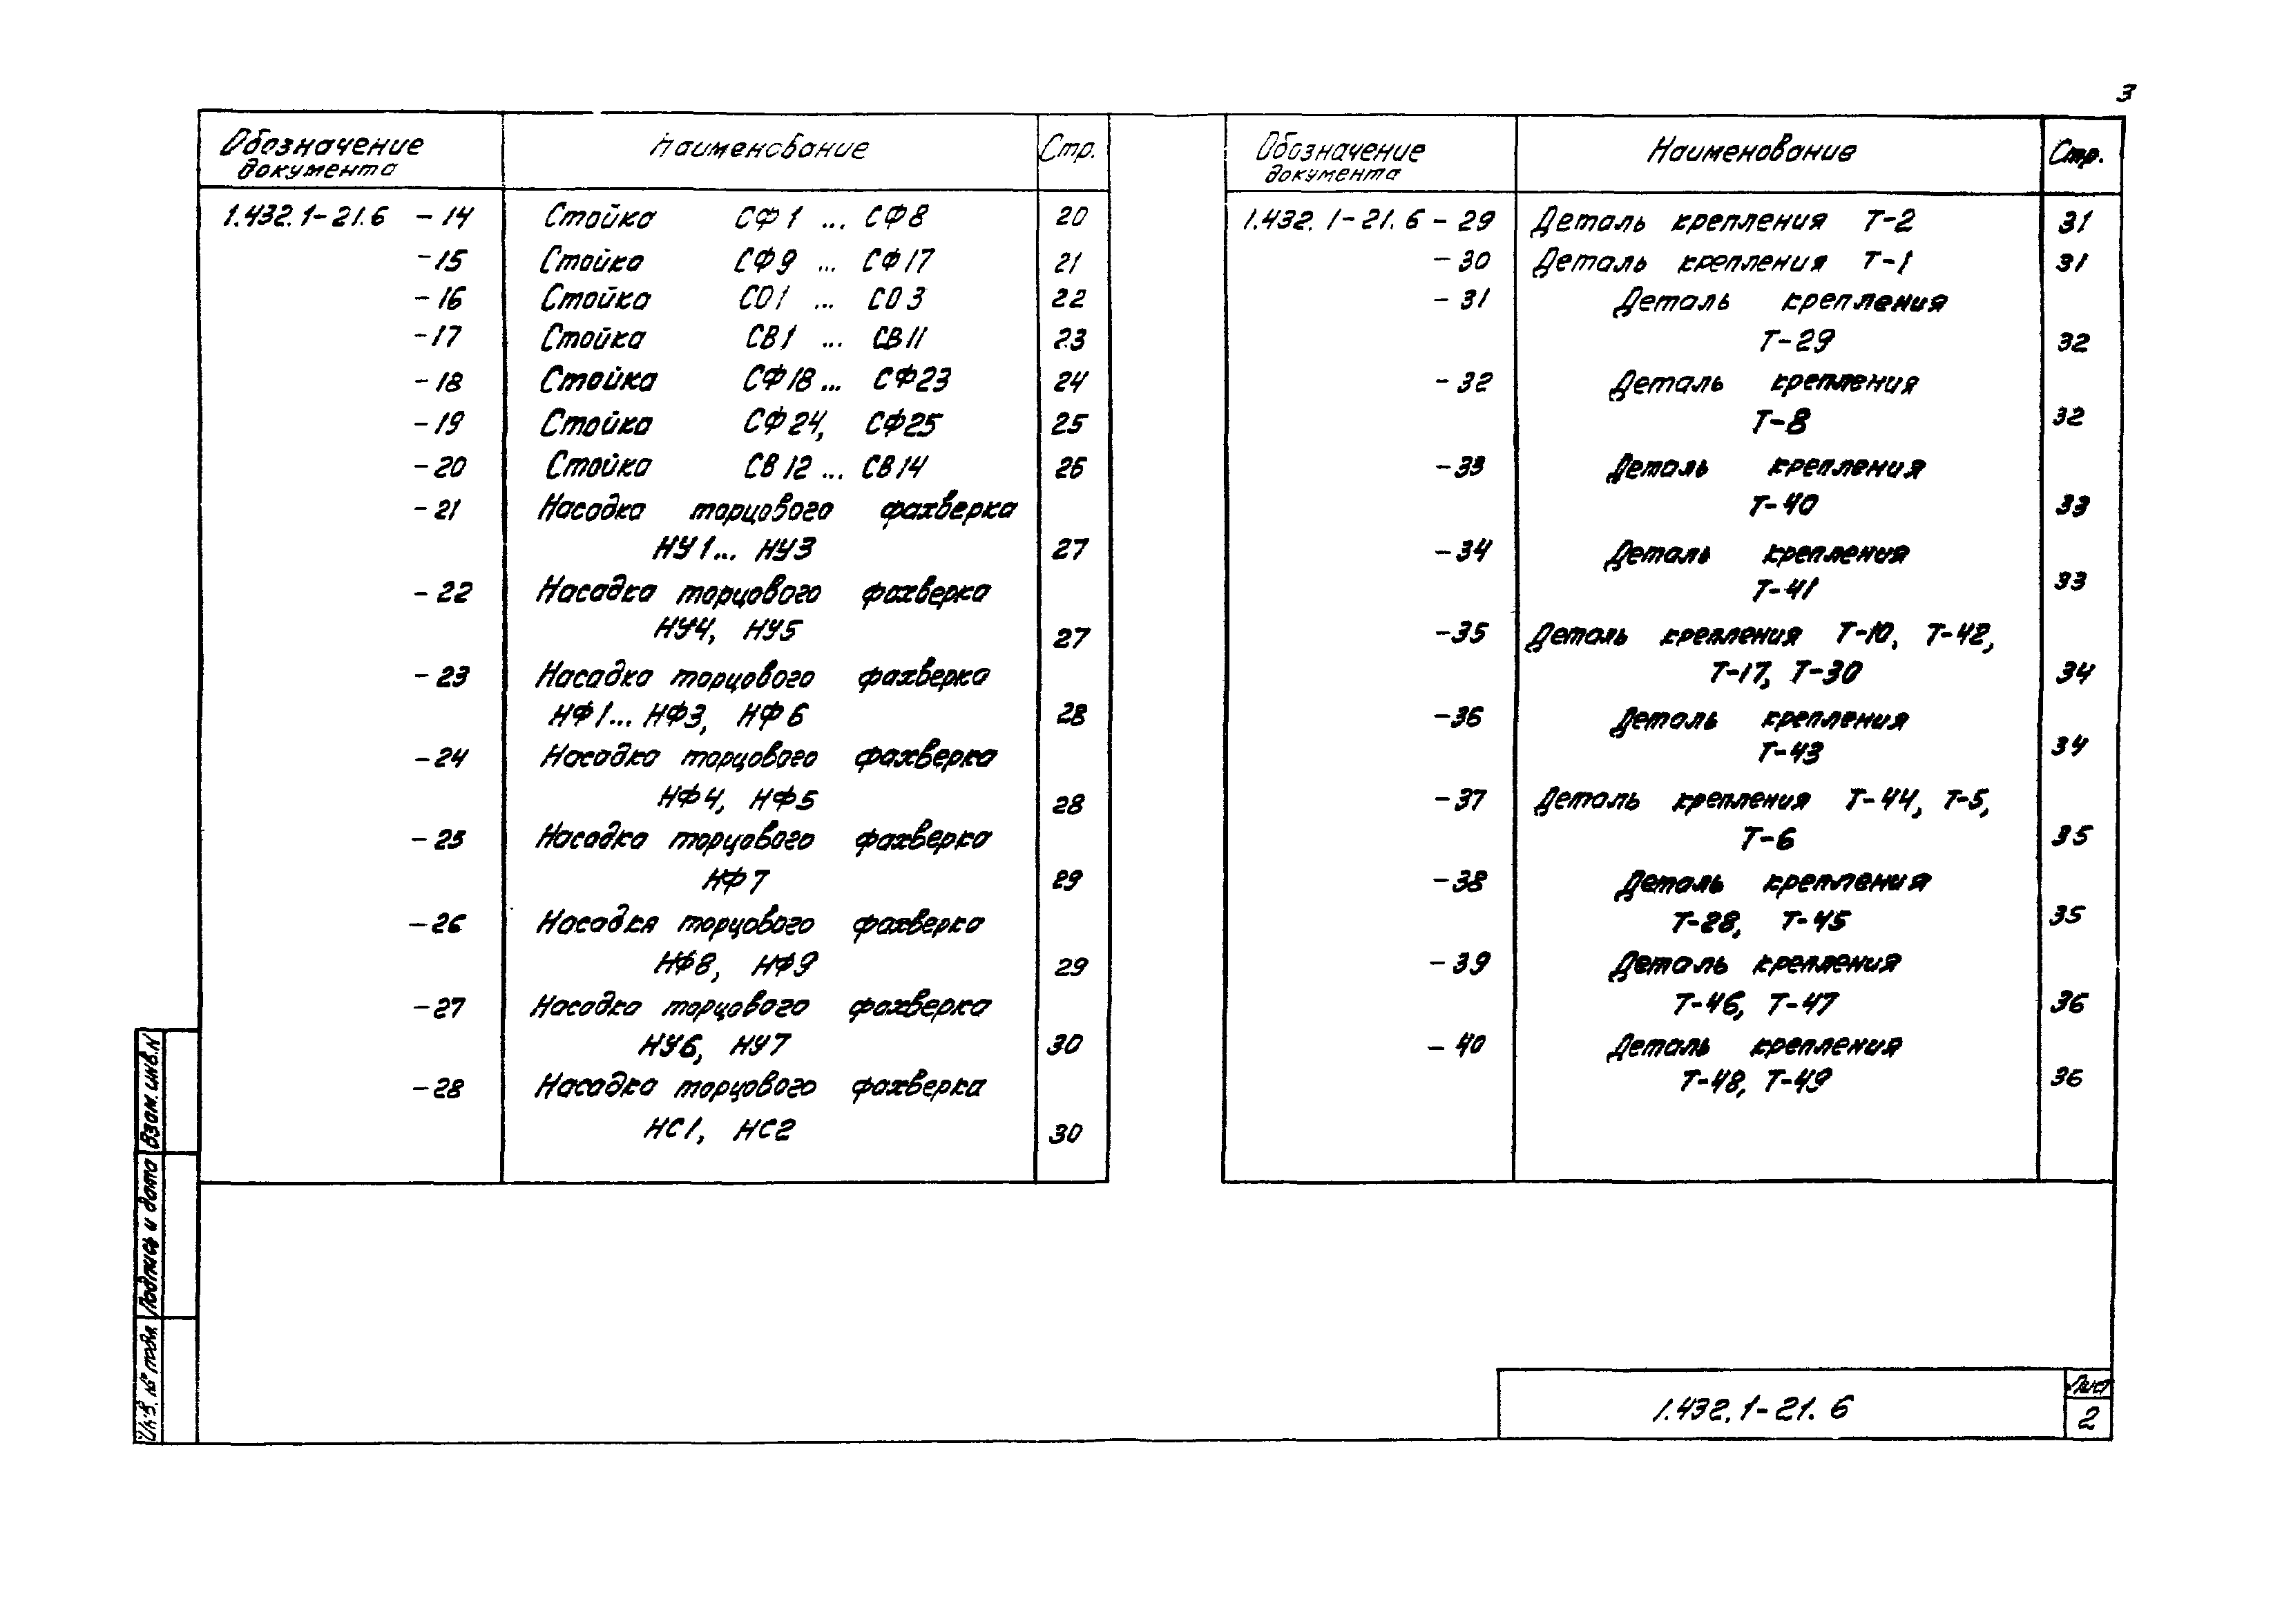 3
Обозначение документа Наименование Стр.
1.432.1-21.6 -14 Стойка СФ1 ... СФ8 20
-15 Стойка СФ9 ... СФ17 21
-16 Стойка СО1 ... СО3 22
-17 Стойка СВ1 ... СВ11 23
-18 Стойка СФ18... СФ23 24
-19 Стойка СФ24, СФ25 25
-20 Стойка СВ12... СВ14 26
-21 Насадка торцового фахверка
НУ1... НУ3 27
-22 Насадка торцового фахверка
НУ4, НУ5 27
-23 Насадка торцового фахверка
НФ1... НФ3, НФ6 28
-24 Насадка торцового фахверка
НФ4, НФ5 28
-25 Насадка торцового фахверка
НФ7 29
-26 Насадкя торцового фахверка
НФ8, НФ9 29
-27 Насадка торцового фахверка
НУ6, НУ7 30
-28 Насадка торцового фахверка
НС1, НС2 30
Обозначение документа Наименование Стр.
1.432.1-21.6-29 Деталь крепления Т-2 31
-30 Деталь крепления Т-1 31
-31 Деталь крепления
Т-29 32
-32 Деталь крепления
Т-8 32
-33 Деталь крепления
Т-40 33
-34 Деталь крепления
Т-41 33
-35 Деталь крепления Т-10, Т-42,
Т-17, Т-30 34
-36 Деталь крепления
Т-43 34
-37 Деталь крепления Т-44, Т-5,
Т-6 35
-38 Деталь крепления
Т-28, Т-45 35
-39 Деталь крепления
Т-46, Т-47 36
-40 Деталь крепления
Т-48, Т-49 36
Взам. инв. N
Подпись и дата
Инв. № подл.
1.432.1-21.6
Лист
2